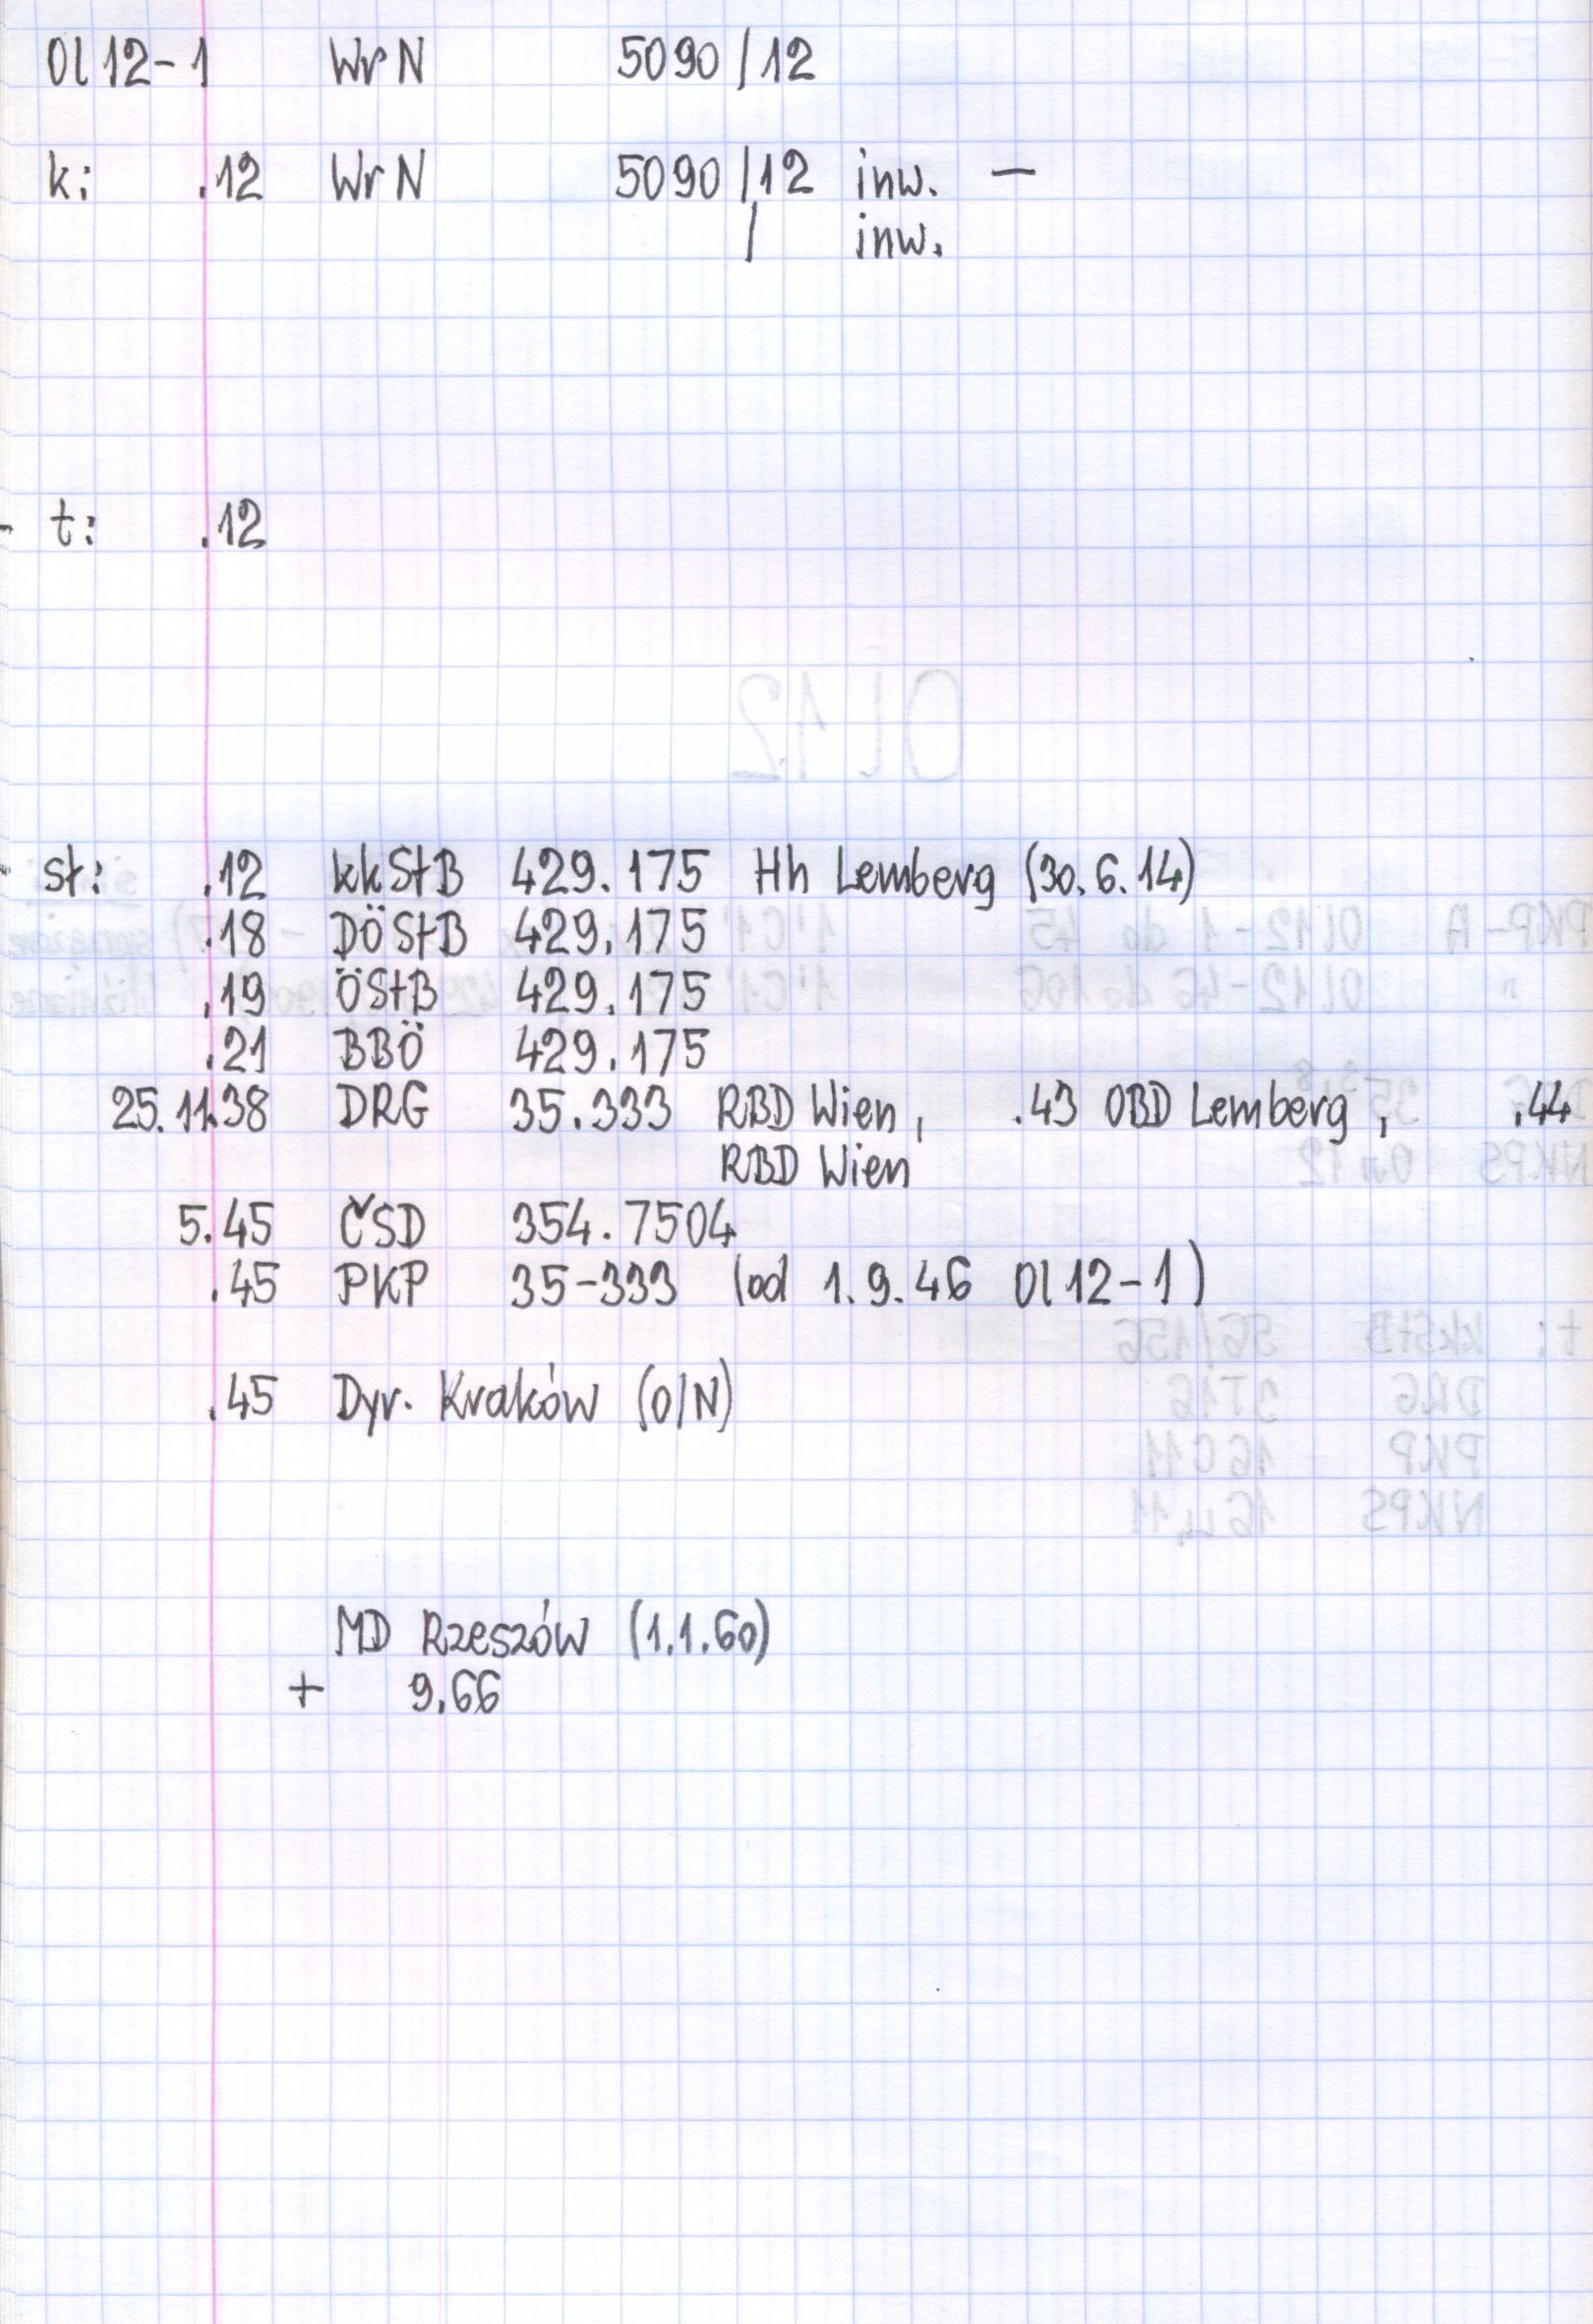 Ol12-1 WrN 5090/12
k: .12 WrN 5090/12 inw. —
/ inw.
t: .12
st: .12 kkStB 429.175 Hh Lemberg (30.6.14)
.18 DÖStB 429.175
.19 ÖStB 429.175
.21 BBÖ 429.175
25.11.38 DRG 35.333 RBD Wien, .43 OBD Lemberg, .44
RBD Wien
5.45 ČSD 354.7504
.45 PKP 35-333 (od 1.9.46 Ol12-1)
.45 Dyr. Kraków (O/N)
MD Rzeszów (1.1.60)
+ 9.66